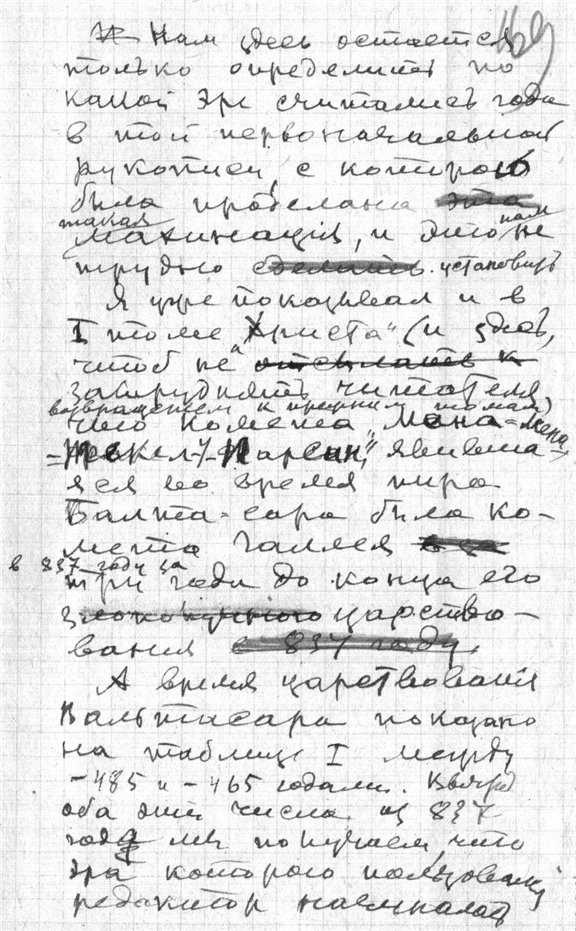 169
Нам здесь остается
только определить по
какой эре считались года
в той первоначальной
рукописи, с которой
была проделана эта
такая нам
махинация, и это не
трудно сделать. установить
Я уже показывал и в
I томе „Христа" (и здесь,
чтоб не отсылать к
затруднять читателя
возвращением к прежним томам)
что комета „Мена-Мена
=Текел-У-Парсин", явивша-
яся во время пира
Балта-сара была ко-
мета Галлея
в 837 году за
три года до конца его
злополучного царство-
вания в 837 году.
А время царствования
Валтасара показано
на таблице I между
-485 и -465 годами. Вычтя
оба эти числа из 837
года мы получаем, что
эра которого пользовался
редактор начиналась